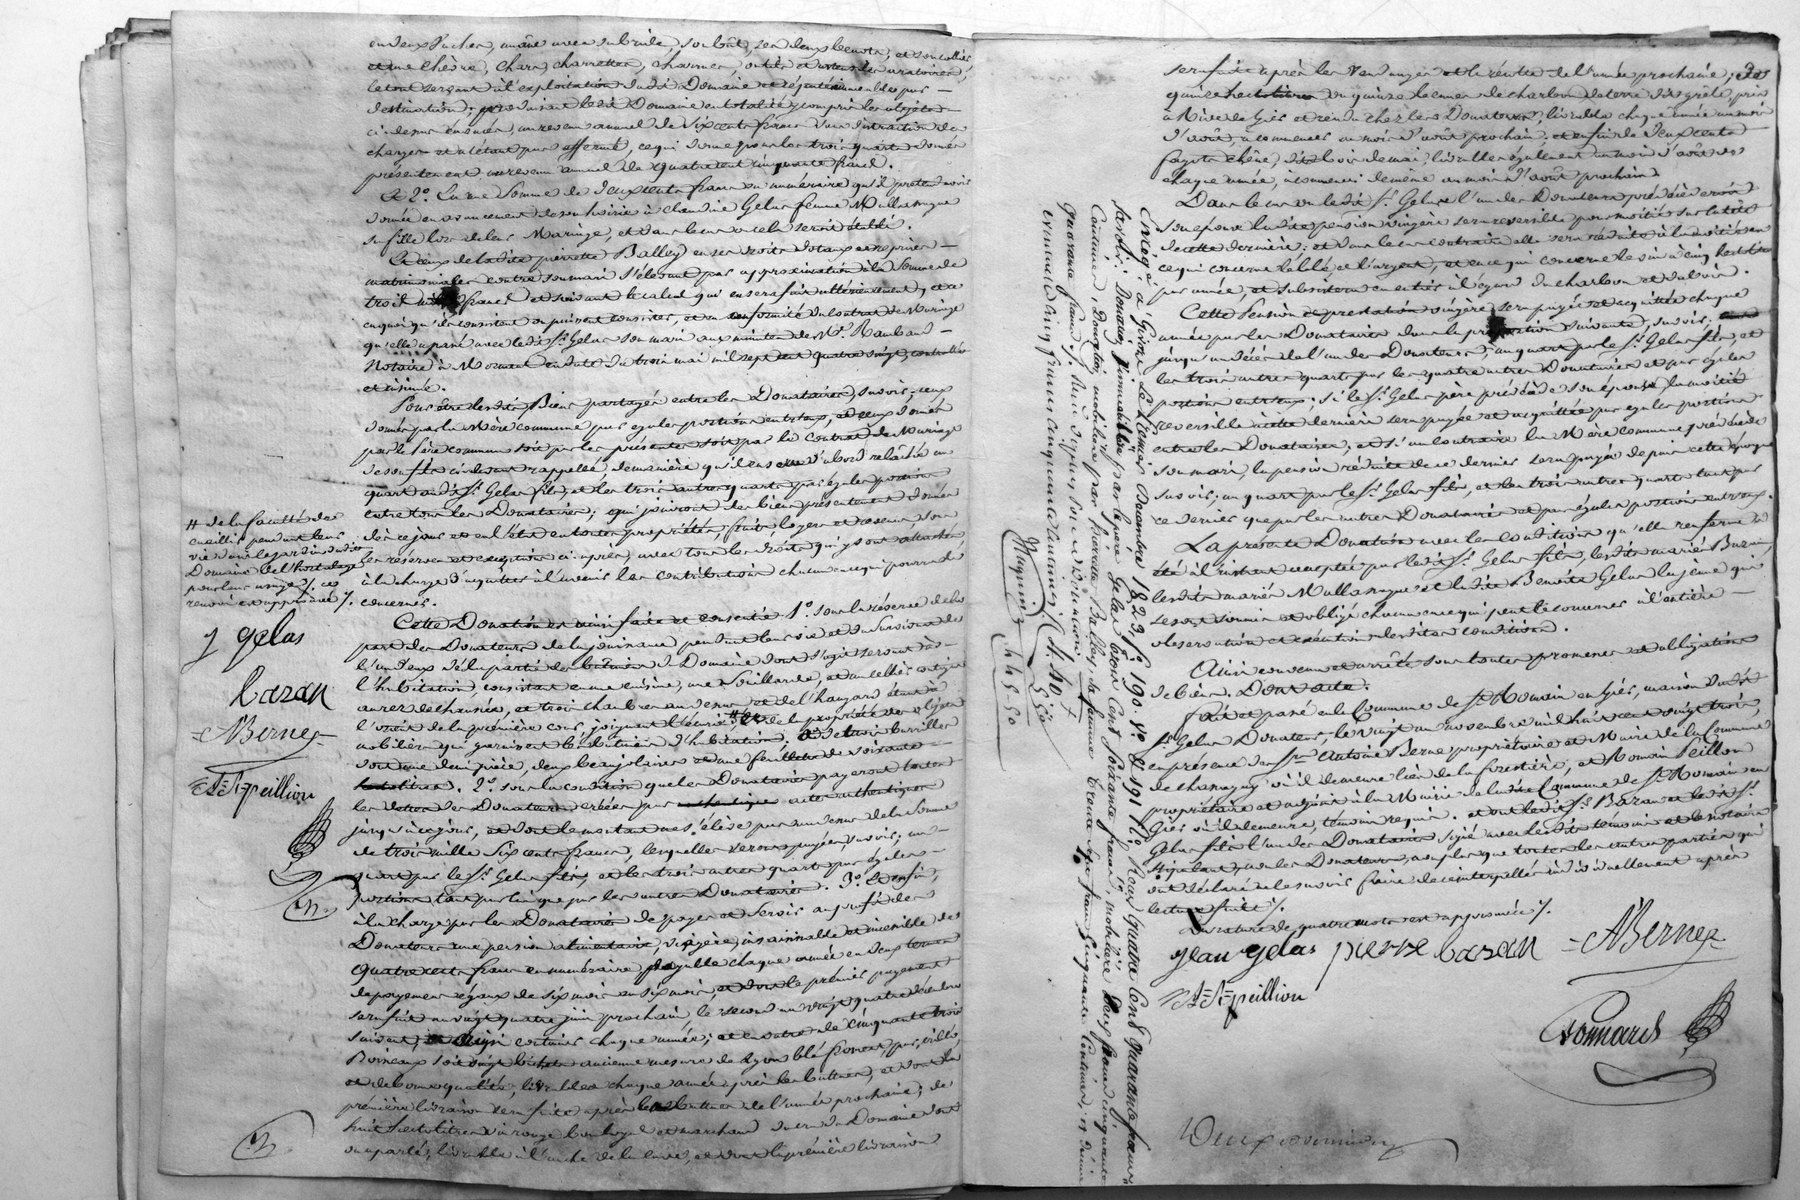 en deux vaches, un âne avec sa bride, son bât, ses deux benots, et son collier
et une chèvre, chars, charrettes, charrues, outils et ustensiles aratoires,
le tout servant à l'exploitation dudit Domaine et réputés immeubles par
destination; produisant ledit Domaine en totalité y compris les objets
ci dessus énoncés, un revenu annuel de six cents francs sans distraction des
charges et n'étant pas affermé, ce qui donne pour les trois quarts donnés
présentement un revenu annuel de quatre cent cinquante francs.
Et 2.° En une somme de deux cents francs en numéraire qu'il protend avoir
donnée en avancement de son hoirie à Claudine Gelas femme Mullassagne
sa fille lors de leur Mariage, et dans leur vocels serait établi.
Et ceux de ladite pierrette Balley en ses droits dotaux et reprises
matrimoniales contre son mari s'élevant par approximation à la somme de
trois mille francs et suivant le calcul qui en sera fait ultérieurement, et à
en quoi qu'ils consistent ou puissent consister, et en conformité du contrat de Mariage
qu'elle a passé avec ledit S.r Gelas son mari aux minutes de M.e Raubaud
Notaire à Mornant en date du trois mai mil sept cent quatre vingt, contrôlé
et insinué.
Pour être lesdits Biens partagés entre les Donataires, savoir; ceux
donnés par la Mère commune par egales portions entr'eux, et ceux donnés
par le Père commun soit par les présentes soit par le contrat de Mariage
de son fils ci-devant rappellé, de manière qu'il en soit d'abord relâché un
quart audit S.r Gelas fils, et les trois autres quarts par egales portions
entre tous les Donataires; qui jouiront des biens présentement donnés
dès ce jour et en l'état en toute propriété, fruits, loyers et revenus sous
les réserves et exceptions ci-après, avec tous les droits qui y sont attachés,
à la charge d'acquitter à l'avenir les contributions chacun en ce qui pourra le
concerner.
# de la faculté de
cueillir pendant leur
vie dans le jardin dudit
Domaine de l'hortolage
pour leur usage /. ce
renvoi est approuvé /.
J gelas
bazan
ABerne
A=A=peillion
Cette Donation est ainsi faite et consentie 1.° sous la réserve de la
part des Donateurs de la jouissance pendant leur vie et du survivant de
l'un d'eux de la partie des bâtimens du Domaine dont s'agit servant à
l'habitation, consistant en une cuisine, une souillarde, et un cellier contigus
au rez de chaussée, et trois chambres au dessus et de l'hangard étant à
l'ouest de la première cour, joignant l'écurie, # et de la propriété des objets
mobiliers qui garnissent les bâtimens d'habitation, et de trois barrilles
soit une demi pièce, deux beaujolaises et une feuillette de soixante
litres. 2.° sous la condition que les Donataires payeront toutes
les dettes des Donateurs créées par actes authentiques
jusqu'à ce jour, et dont le montant ne s'élève pas au dessus de la somme
de trois mille six cents francs, lesquelles seront payées savoir; un
quart par le S.r Gelas fils, et les trois autres quarts par égales
portions tant par lui que par les autres Donataires. 3.° Et enfin,
à la charge par les Donataires de payer et servir au profit des
Donateurs une pension alimentaire, viagère, insaisissable et incessible de
quatre cents francs en numéraire payable chaque année en deux termes
de payemens égaux de six mois en six mois, et dont le premier payement
sera fait au vingt quatre juin prochain, le second au vingt quatre décembre
suivant, et ainsi continuer chaque année; et en outre de cinquante trois
Boisseaux soit vingt bichets ancienne mesure de Lyon blé froment, pur, criblé,
et de bonne qualité, livrables chaque année après les battues, et dont la
première livraison sera faite après les battues de l'année prochaine; de
huit hectolitres vin rouge bon loyal et marchand du cru du Domaine dont
on a parlé, livrable à l'anche de la cuve, et dont la première livraison
sera faite après les vendanges et la récolte de l'année prochaine; et de
quinze bennes de charbon de terre dit grêle, pris
à Rive de Gier et rendu chez les Donateurs, livrable chaque année au mois
d'août, à commencer au mois d'août prochain, et enfin de deux cents
fagots chêne, dits bois de mai, livrables également au mois d'août de
chaque année, à commencer de même au mois d'août prochain.
Dans le cas où ledit S.r Gelas l'un des Donateurs précéderait
son épouse ladite pension viagère sera reversible pour moitié sur la tête
de cette dernière; et dans le cas contraire elle sera réduite à la moitié en
ce qui concerne le blé et l'argent, et en ce qui concerne le vin à cinq hectolitres
par année, et subsistera en entier à l'égard du charbon et du bois.
Cette Pension et prestation viagère sera payée et acquittée chaque
année par les Donataires dans la proportion suivante, savoir;
jusqu'au décès de l'un des Donateurs, un quart par le S.r Gelas fils, et
les trois autres quarts par les quatre autres Donataires et par égales
portions entr'eux; si le S.r Gelas père précède son épouse la moitié
reversible à cette dernière sera payée et acquittée par egales portions
entre les Donataires, et si au contraire la Mère commune précède
son mari, la pension réduite de ce dernier sera payée depuis cette époque
savoir; un quart par le S.r Gelas fils, et les trois autres quarts tant par
ce dernier que par les autres Donataires et par égales portions entr'eux.
La présente Donation avec les conditions qu'elle renferme a
été à l'instant acceptée par ledit S.r Gelas fils, lesdits mariés Bazan,
lesdits mariés Mullassagne et ladite Benoite Gelas la jeune qui
se sont soumis et obligés chacun en ce qui peut le concerner à l'entière
observation et exécution desdites conditions.
Ainsi convenu et arrêté sous toutes promesses et obligations
de biens. Dont acte.
Fait et passé en la Commune de St. Romain en Giés, maison dudit
S.r Gelas Donateur, le vingt un novembre mil huit cent vingt trois,
en présence des S.rs Antoine Berne propriétaire et Maire de la Commune
de chassagny où il demeure lieu de la forestière, et Romain Peillon
propriétaire et adjoint à la Mairie de ladite Commune de St. Romain en
Giés où il demeure, témoins requis. et ont ledit S.r Bazan et ledit S.r
Gelas fils l'un des Donataires signé avec lesdits témoins et le notaire
stipulant, non les Donateurs, non plus que toutes les autres parties qui
ont déclaré ne le savoir faire de ce interpellés individuellement après
lecture faite /.
La rature de quatre mots est approuvée /.
jean gelas pierre bazan ABerne
A=A=peillion
Fonnard
Enregé à Givors Le 1er Décembre 1823 f.° 190 V.° & 191 R.° Reçu Quatre Cent Quarante francs
sur les Donations immobilières par le père Gelas trois cent soixante francs, mobilière deux francs cinquante
Centimes, Donation mobilière par Pierrette Balley sa femme trente sept francs cinquante Centimes, et dixième
quarante francs